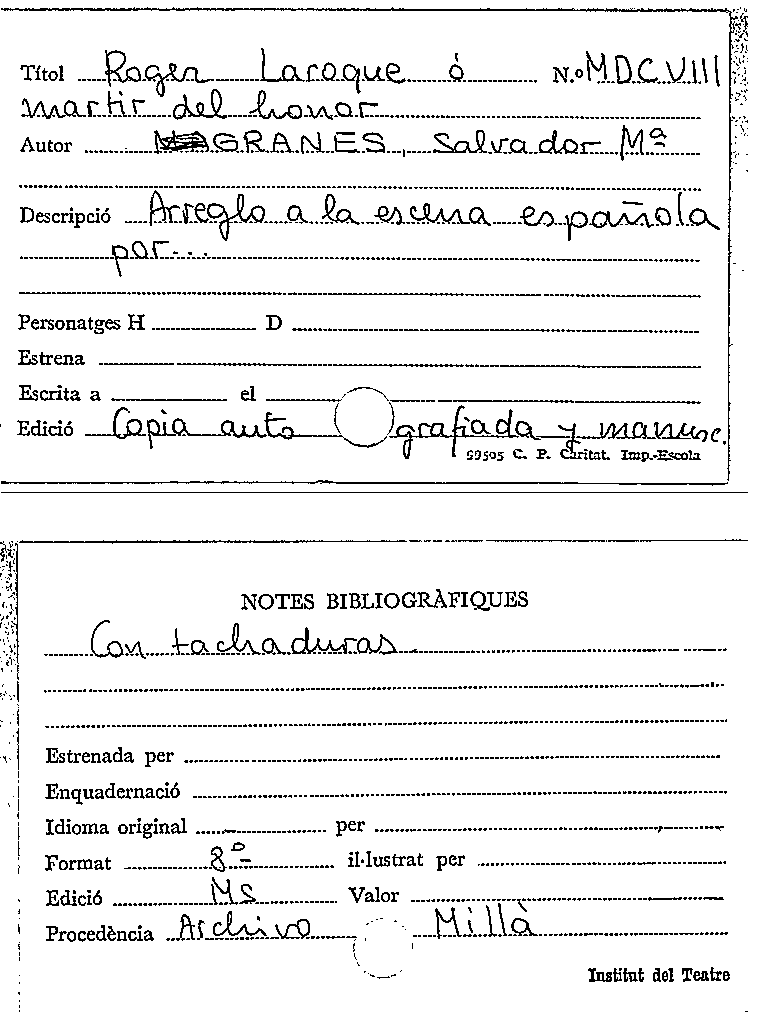 Títol Roger Laroque ó N.º MDCVIII
martir del honor
Autor MAGRANES, Salvador Mª
Descripció Arreglo a la escena española
por...
Personatges H D
Estrena
Escrita a el
Edició Copia autografiada y manusc.
69505 C. P. Caritat. Imp.-Escola
NOTES BIBLIOGRÀFIQUES
Con tachaduras.
Estrenada per
Enquadernació
Idioma original per
Format 8º il·lustrat per
Edició Ms Valor
Procedència Archivo Millà
Institut del Teatre